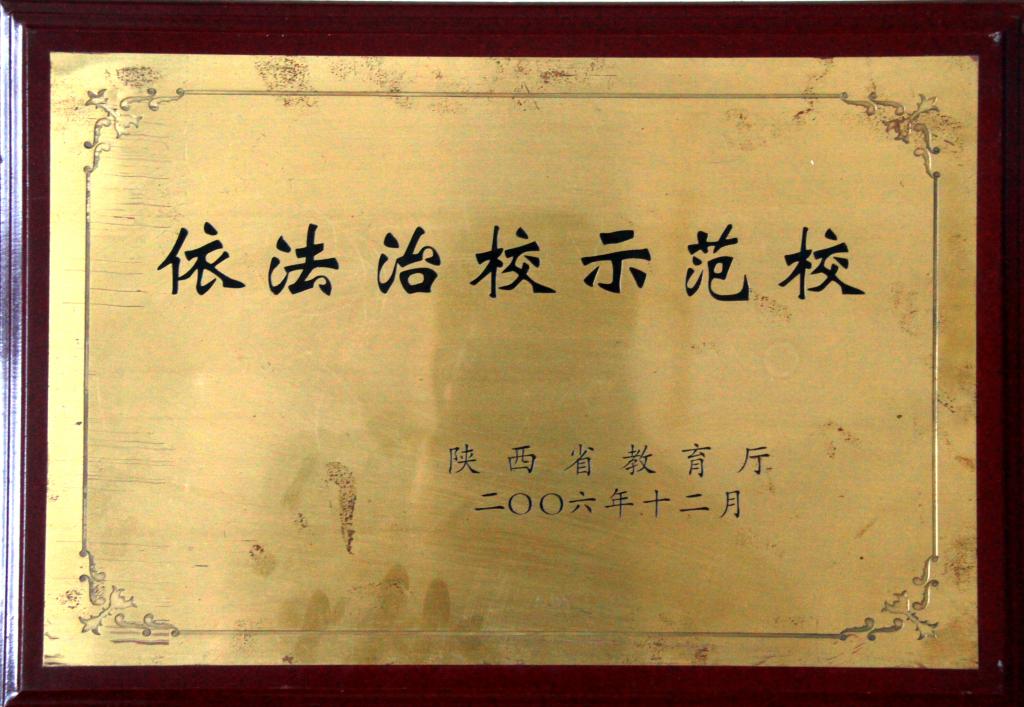 依法治校示范校
陕西省教育厅
二〇〇六年十二月